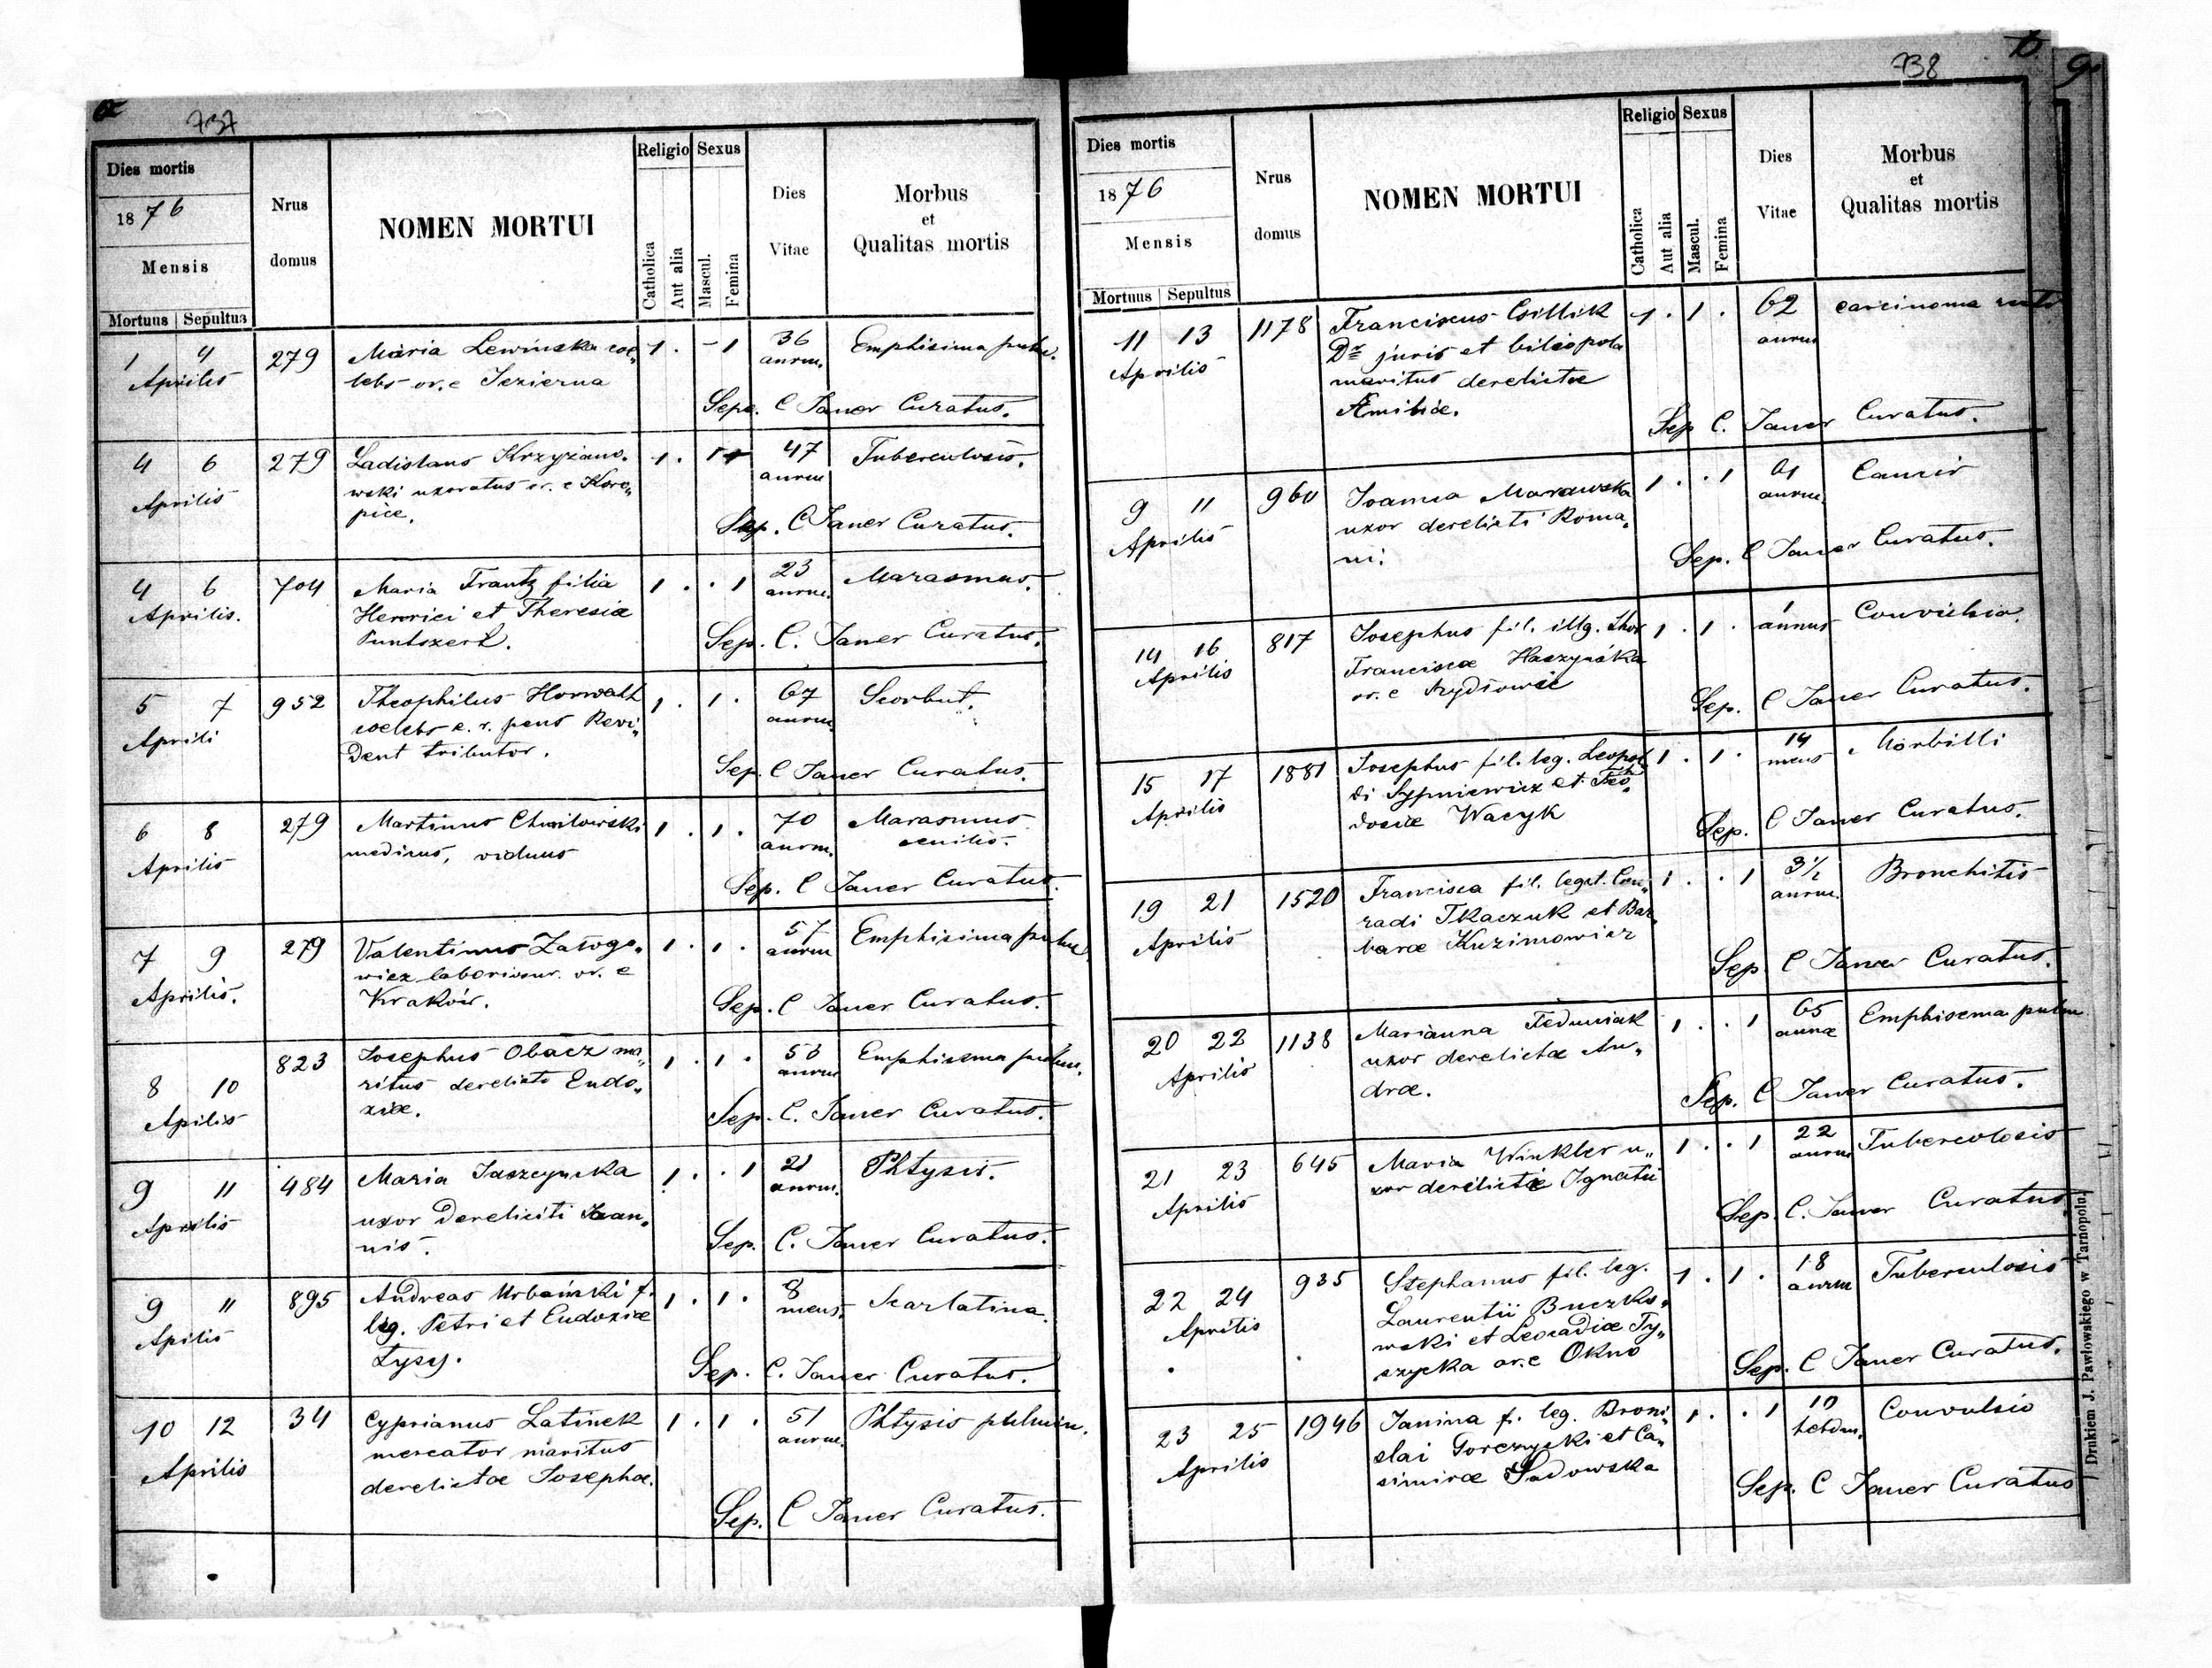 737
Dies mortis
1876
Mensis
Mortuus Sepultus
Nrus domus
NOMEN MORTUI
Religio
Catholica
Aut alia
Sexus
Mascul.
Femina
Dies Vitae
Morbus et Qualitas mortis
1 4 279 Maria Lewinska coe„ 1 . - 1 36 Emphisima pulm.
Aprilis lebs or. e Jezierna annm.
Sep. C Janer Curatus.
4 6 279 Ladislaus Krzyżano„ 1 . 1 47 Tuberculosis.
Aprilis wski uxoratus or. e Koro„ annm
pice.
Sep. C Janer Curatus.
4 6 704 Maria Frantz filia 1 . . 1 23 Marasmus.
Aprilis. Henrici et Theresiæ annm.
Puntszert.
Sep. C. Janer Curatus.
5 7 952 Theophilus Horwath 1 . 1 . 67 Scorbut.
Aprili coelebs c. r. pens Revi„ annm
dent tributor.
Sep. C Janer Curatus.
6 8 279 Martinus Chmilowski 1 . 1 . 70 Marasmus
Aprilis medicus, viduus annm. senilis.
Sep. C Janer Curatus.
7 9 279 Valentinus Załogo„ 1 . 1 . 57 Emphisima pulm.
Aprilis. wicz laboriosus. or. e annm
Kraków.
Sep. C Janer Curatus.
823 Josephus Obacz ma„ 1 . 1 . Emphisema pulm.
8 10 ritus derelicto Eudo„ annm
Apilis xiæ.
Sep. C. Janer Curatus.
9 11 484 Maria Jaszczynska 1 . . 1 21 Phtysis.
Aprilis uxor derelicti Joan„ annm.
nis.
Sep. C. Janer Curatus.
9 11 895 Andreas Urbański f. 1 . 1 . 8 Scarlatina.
Apilis leg. Petri et Eudoxiæ mens.
Łysy.
Sep. C. Janer Curatus.
10 12 34 Cyprianus Latinek 1 . 1 . 51 Phtysis pulmin.
Aprilis mercator maritus annm.
derelictæ Josephæ.
Sep. C Janer Curatus.
738
Dies mortis
1876
Mensis
Mortuus Sepultus
Nrus domus
NOMEN MORTUI
Religio
Catholica
Aut alia
Sexus
Mascul.
Femina
Dies Vitae
Morbus et Qualitas mortis
11 13 1178 Franciscus Csillik 1 . 1 . 62 carcinoma
Aprilis Dr juris et bibliopola annm
maritus derelictæ
Æmiliæ.
Sep C. Janer Curatus.
9 11 960 Joanna Morawska 1 . . 1 61
Aprilis uxor derelicti Roma„ annm.
ni.
Sep. C Janer Curatus.
14 16 817 Josephus fil. illg. 1 . 1 . 1 Convulsio.
Aprilis Franciscæ Haszyńska annus
or. e
Sep. C Janer Curatus.
15 17 1881 Josephus fil. leg. Leopol„ 1 . 1 . 14 Morbilli
Aprilis di Sypniewicz et Teo„ mens
dosiæ Wacyk
Sep. C Janer Curatus.
19 21 1520 Francisca fil. legit. Con„ 1 . . 1 3½ Bronchitis
Aprilis radi Tkaczuk et Bar„ annm.
baræ Kuzimowicz
Sep C Janer Curatus.
20 22 1138 Marianna Feduniak 1 . . 1 65 Emphisema pulm
Aprilis uxor derelictæ An„ annæ
dræ.
Sep. C Janer Curatus.
21 23 645 Maria Winkler u„ 1 . . 1 22 Tuberculosis
Aprilis xor derelictæ Ignatii annm
Sep. C. Janer Curatus.
22 24 935 Stephanus fil. leg. 1 . 1 . 18 Tuberculosis
Aprilis Laurentii Buczko„ annm
wski et Leocadiæ Ty„
szycka or. e Okno
Sep. C Janer Curatus.
23 25 1946 Janina f. leg. Broni„ 1 . . 1 10 Convulsio
Aprilis slai Gorczycki et Ca„ hebdm.
simiræ Sadowska
Sep. C Janer Curatus
Drukiem J. Pawłowskiego w Tarnopolu.